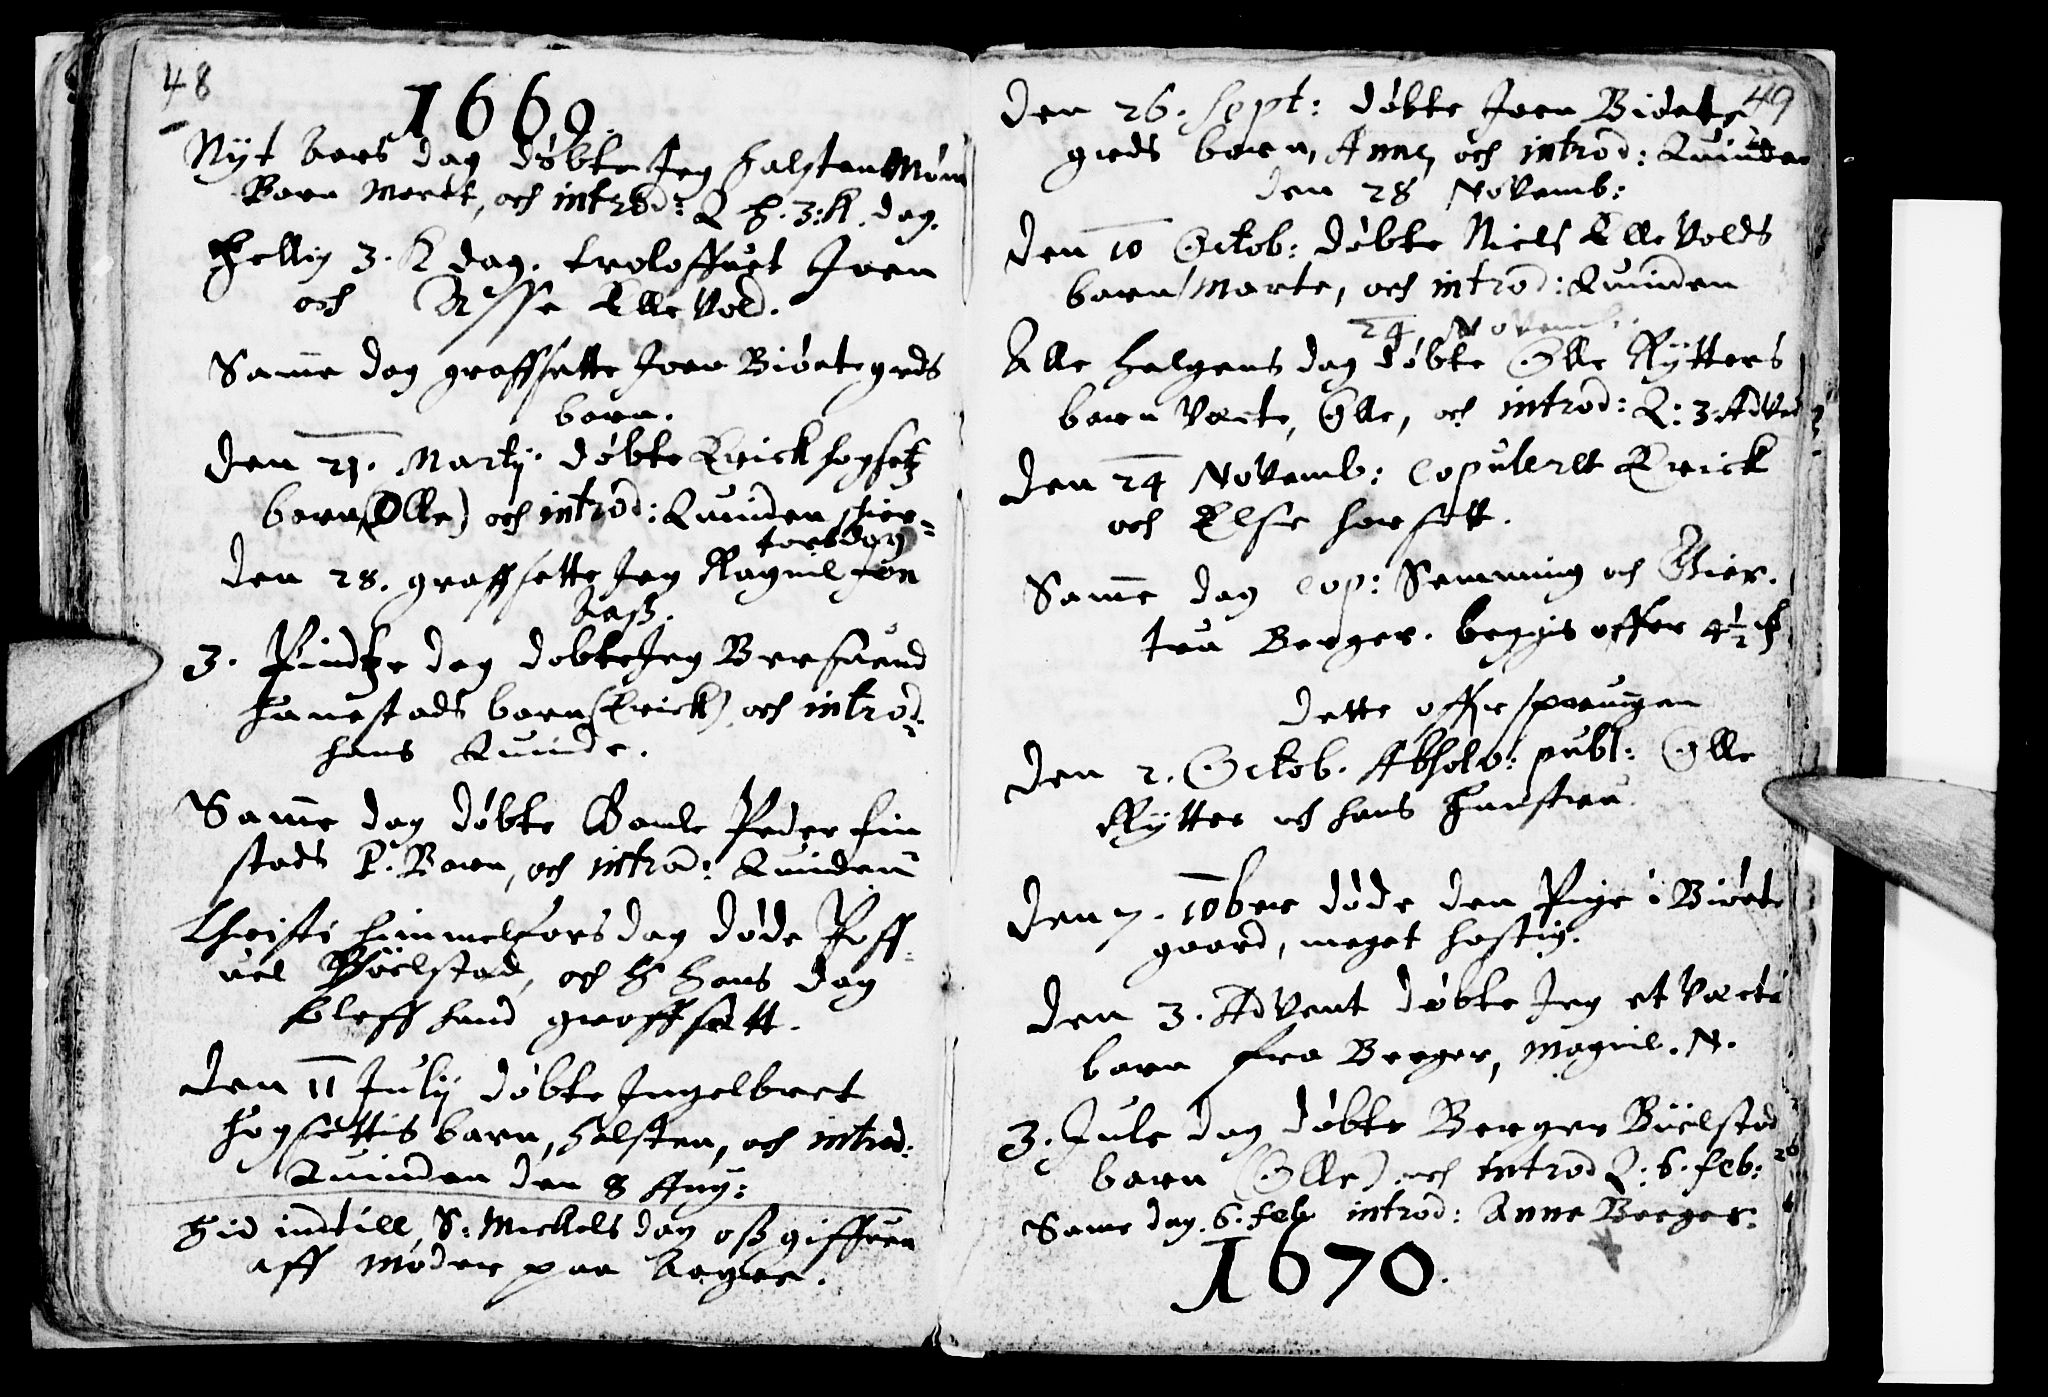 48
1669.
Nyt Aars dag døbte Jeg Halsten Møen
Barn Meret, och introd: Q H. 3. K. dag.
Hellig 3. K dag. troloffuet Joen
och Aasse Elle Vold.
Same dag graffsette Joen Biøetegrds
barn.
Den 21. Martij. døbte Erick hogsetz
barn (Olle) och introd: Quinden schier-
torsdag
Den 28. graffsette Jeg Ragnil Jon
Aaß.
3. Pindtze dag døbte Jeg Bersuend
Hanestads barn (Erick) och introd:
hans Quinde.
Same dag døbte Gamle Peder Fin
stads P. Barn, och introd: Quinden
Christi himmelfors dag døde Poff
uel Bøelstad, och H Hans dag
bleff hand graffsett.
Den 11 Julij døbte Ingelbret
hogsettis barn, Halsten, och introd:
Quinden den 8 Aug:
Hid indtill S: Mickels dag oß giffuen
aff møder paa Aagre.
49
Den 26. Sept: døbte Joen Bioete
grds barn, Anne, och introd: Quinden
den 28 Novemb:
Den 10 Octob: døbte Niels Elle Volds
barn Marte, och introd: Quinden
24 Novemb.
Alle Helgens dag døbte Olle Rytters
barn Vecte, Olle, och introd: Q: 3. Advent
Den 24 Novemb: Copuleret Erick
och Else horsett.
Same dag Cop: Semming och Gier-
tru Berger. beggis offer 4½
dette offer
Den 2. Octob. Absolv: publ: Olle
Rytter och hans Hustru
Den 7. 10bre døde den Pige i Biøete
gaard, meget hastig.
Den 3. Advent døbte Jeg et Vecte
barn fra Berger, Magnil. N.
3. Jule dag døbte Berger Bøelstad
barn (Olle) och introd Q: 6. feb:
Same dag. 6. feb introd: Anne Berger.
1670.